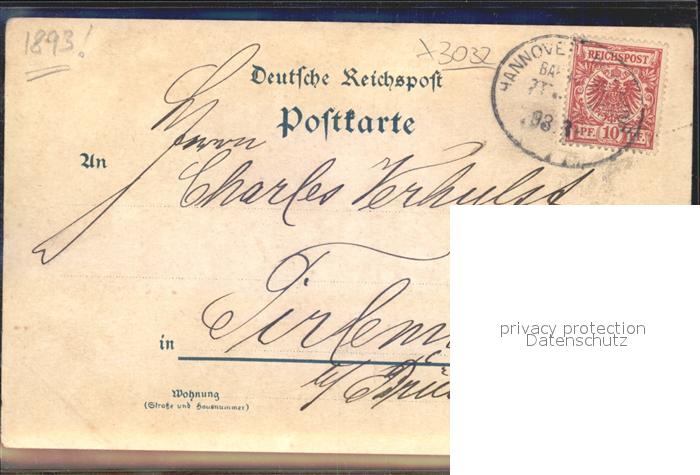 1893!
x3032
HANNOVER
REICHSPOST
93.
PF. 10 PF.
Deutsche Reichspost
Postkarte
An
Herrn
Charles Verhulst
in
Tirlem
b/ Brüs
Wohnung
(Straße und Hausnummer)
privacy protection
Datenschutz